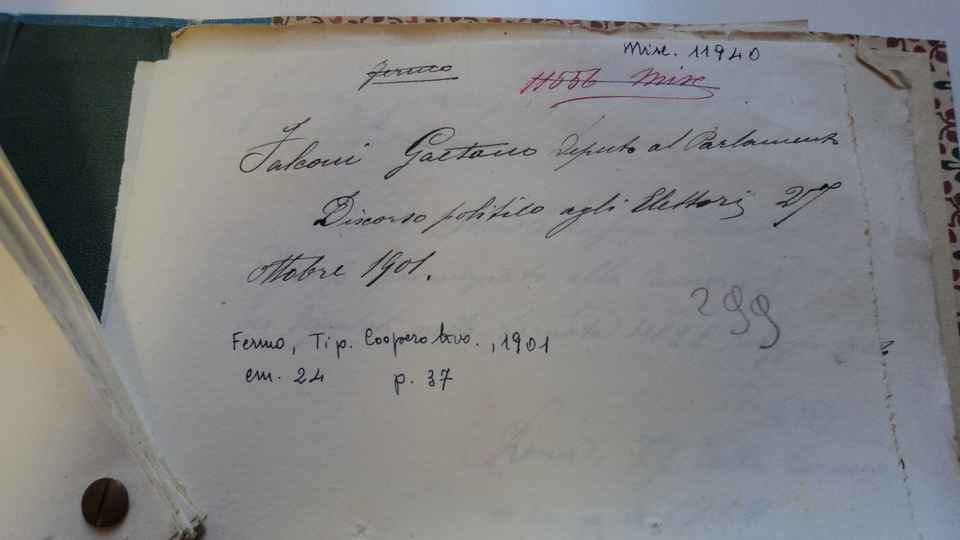 Misc. 11940
Fermo
Misc
Falconi Gaetano Deputo al Parlamento
Discorso politico agli Elettori 27
ottobre 1901.
299
Fermo, Tip. Cooperativa., 1901
cm. 24 p. 37